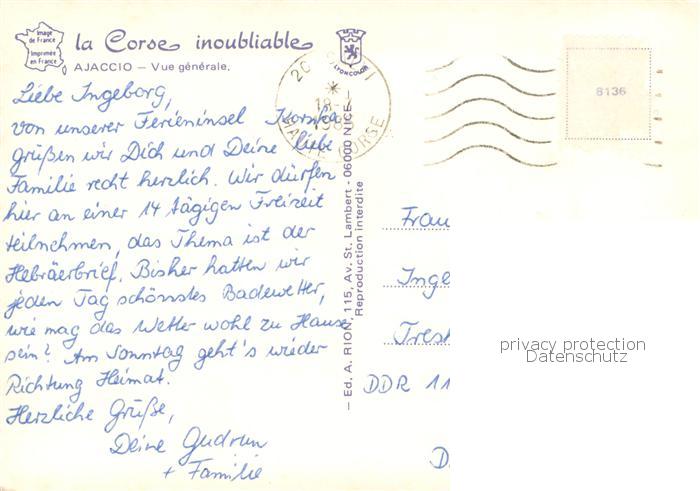 Image
de France
Imprimée
en France
la Corse inoubliable
AJACCIO — Vue générale.
LYONCOLOR
8136
Liebe Ingeborg,
von unserer Ferieninsel Korsika
grüßen wir Dich und Deine liebe
Familie recht herzlich. Wir dürfen
hier an einer 14 tägigen Freizeit
teilnehmen, das Thema ist der
Hebräerbrief. Bisher hatten wir
jeden Tag schönstes Badewetter,
wie mag das Wetter wohl zu Hause
sein? Am Sonntag geht's wieder
Richtung Heimat.
Herzliche Grüße,
Deine Gudrun
+ Familie
— Ed. A. RION, 115, Av. St. Lambert - 06000 NICE —
Reproduction interdite
Frau
Inge
Trest
DDR 11
D
privacy protection
Datenschutz